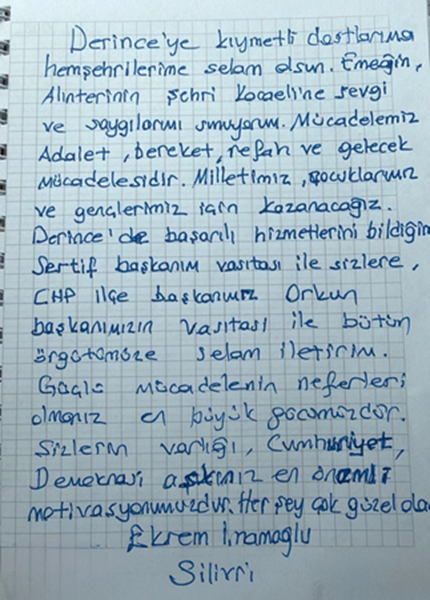 Derince'ye kıymetli dostlarıma
hemşehrilerime selam olsun. Emeğin,
Alınterinin şehri Kocaeli'ne sevgi
ve saygılarımı sunuyorum. Mücadelemiz
Adalet, bereket, refah ve gelecek
mücadelesidir. Milletimiz, çocuklarımız
ve gençlerimiz için kazanacağız.
Derince'de başarılı hizmetlerini bildiğim
Sertif başkanım vasıtası ile sizlere,
CHP ilçe başkanımız Orkun
başkanımızın vasıtası ile bütün
örgütümüze selam iletirim.
Güçlü mücadelenin neferleri
olmanız en büyük gücümüzdür.
Sizlerin varlığı, Cumhuriyet,
Demokrasi aşkınız en önemli
motivasyonumuzdur. Her şey çok güzel ola
Ekrem İmamoğlu
Silivri